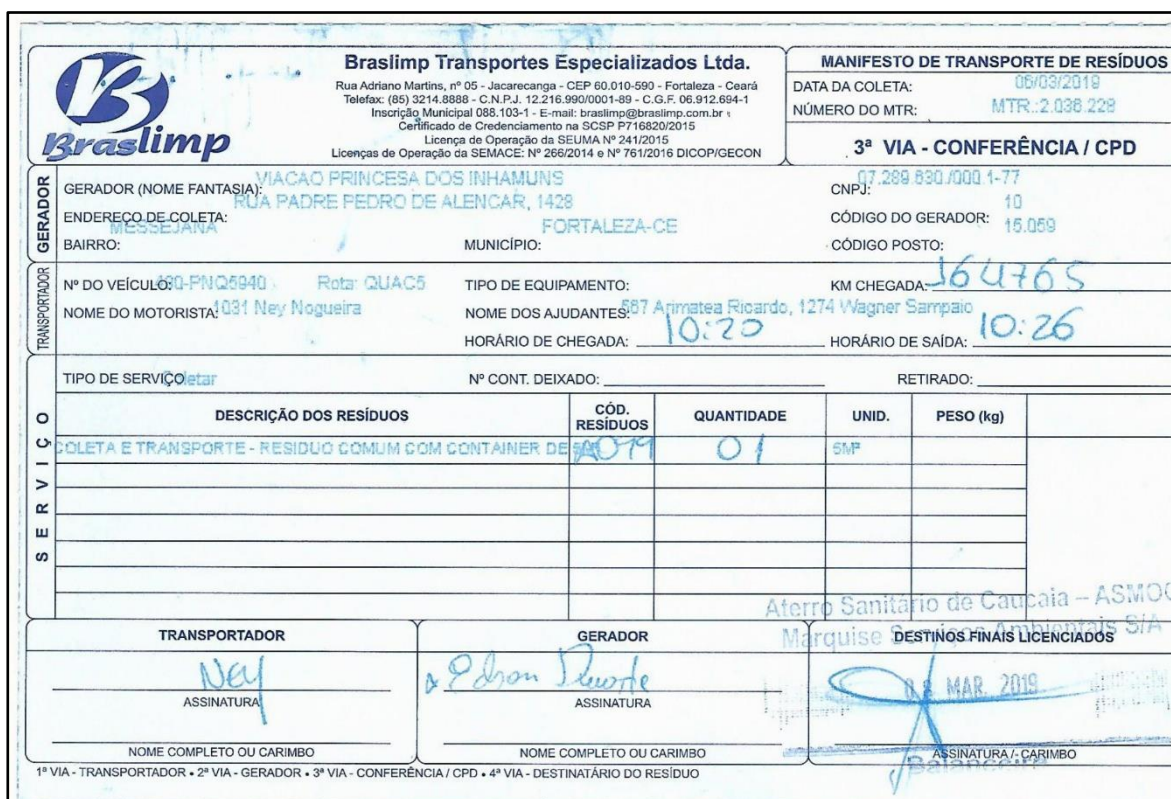 Braslimp
Braslimp Transportes Especializados Ltda.
Rua Adriano Martins, nº 05 - Jacarecanga - CEP 60.010-590 - Fortaleza - Ceará
Telefax: (85) 3214.8888 - C.N.P.J. 12.216.990/0001-89 - C.G.F. 06.912.694-1
Inscrição Municipal 088.103-1 - E-mail: braslimp@braslimp.com.br
Certificado de Credenciamento na SCSP P716820/2015
Licença de Operação da SEUMA Nº 241/2015
Licenças de Operação da SEMACE: Nº 266/2014 e Nº 761/2016 DICOP/GECON
MANIFESTO DE TRANSPORTE DE RESÍDUOS
DATA DA COLETA: 06/03/2019
NÚMERO DO MTR: MTR.:2.036.228
3ª VIA - CONFERÊNCIA / CPD
GERADOR
GERADOR (NOME FANTASIA): VIACAO PRINCESA DOS INHAMUNS CNPJ: 07.289.630./000.1-77
ENDEREÇO DE COLETA: RUA PADRE PEDRO DE ALENCAR, 1428 CÓDIGO DO GERADOR: 10
BAIRRO: MESSEJANA MUNICÍPIO: FORTALEZA-CE CÓDIGO POSTO: 15.059
TRANSPORTADOR
Nº DO VEÍCULO: 490-PNQ5940 Rota: QUAC5 TIPO DE EQUIPAMENTO: KM CHEGADA: 164765
NOME DO MOTORISTA: 1031 Ney Nogueira NOME DOS AJUDANTES: 567 Arimatea Ricardo, 1274 Wagner Sampaio
HORÁRIO DE CHEGADA: 10:20 HORÁRIO DE SAÍDA: 10:26
SERVIÇO
TIPO DE SERVIÇO Coletar Nº CONT. DEIXADO: RETIRADO:
DESCRIÇÃO DOS RESÍDUOS CÓD. RESÍDUOS QUANTIDADE UNID. PESO (kg)
COLETA E TRANSPORTE - RESIDUO COMUM COM CONTAINER DE A019 01 5M³
Aterro Sanitário de Caucaia – ASMOC
Marquise Serviços Ambientais S/A
TRANSPORTADOR GERADOR DESTINOS FINAIS LICENCIADOS
Ney Edson Duarte MAR. 2019
ASSINATURA ASSINATURA
NOME COMPLETO OU CARIMBO NOME COMPLETO OU CARIMBO ASSINATURA / CARIMBO
Balanceira
1ª VIA - TRANSPORTADOR • 2ª VIA - GERADOR • 3ª VIA - CONFERÊNCIA / CPD • 4ª VIA - DESTINATÁRIO DO RESÍDUO